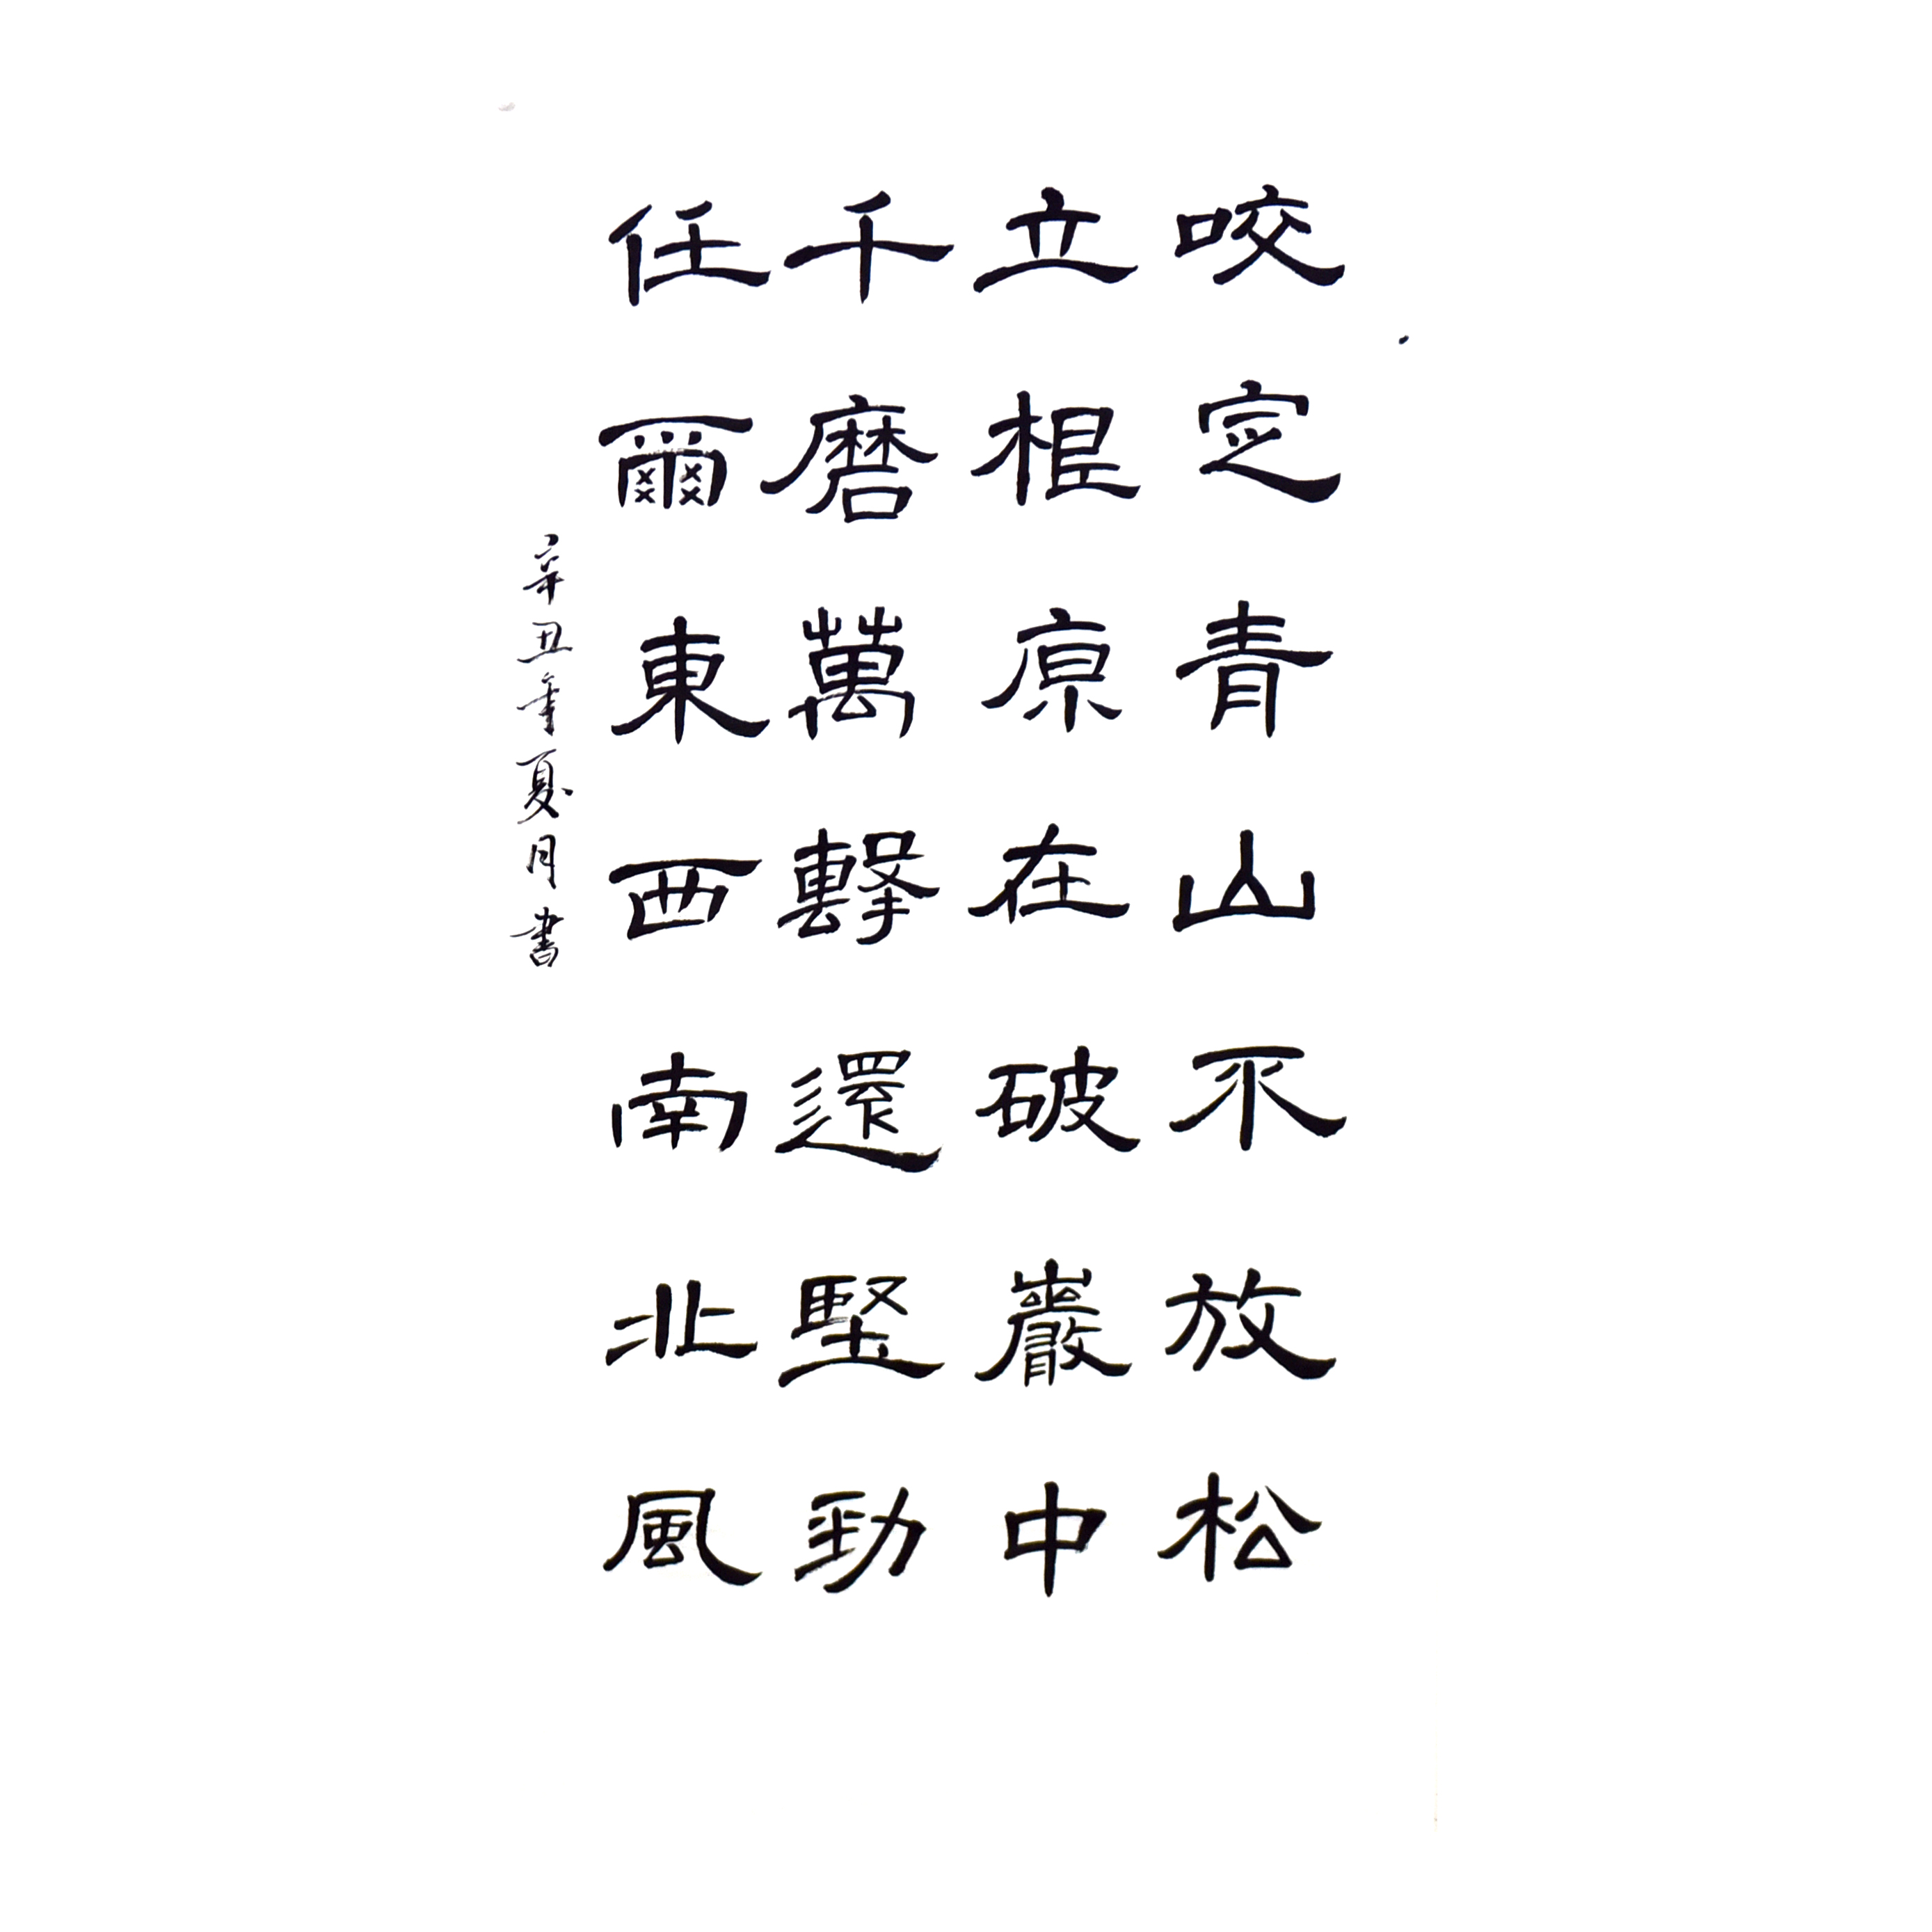 咬定青山不放松
立根原在破巖中
千磨萬擊還堅勁
任爾東西南北風
辛丑年夏月書